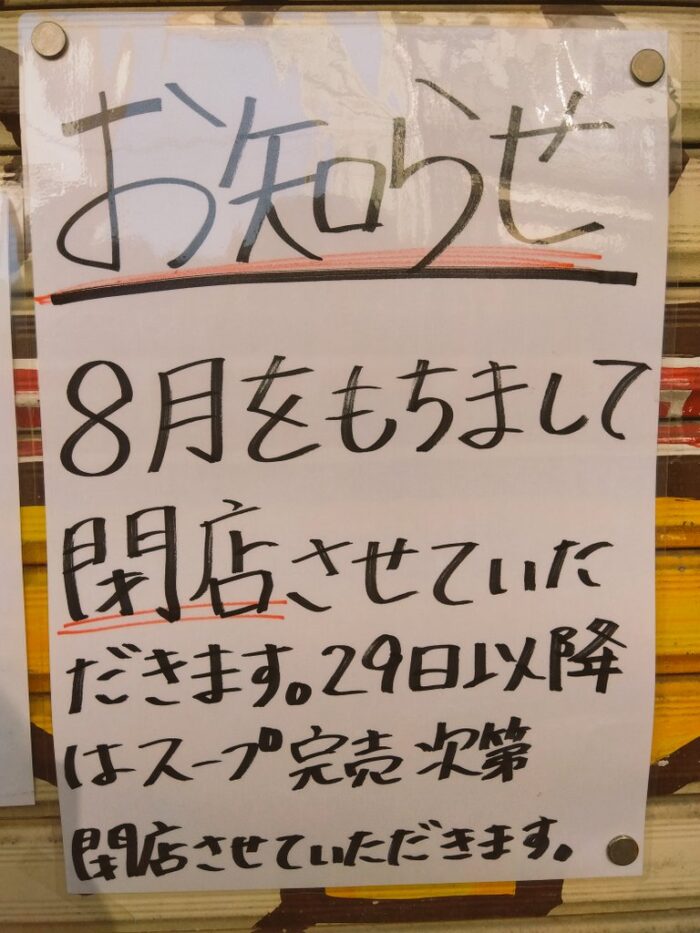 お知らせ
8月をもちまして
閉店させていた
だきます。29日以降
はスープ完売次第
閉店させていただきます。